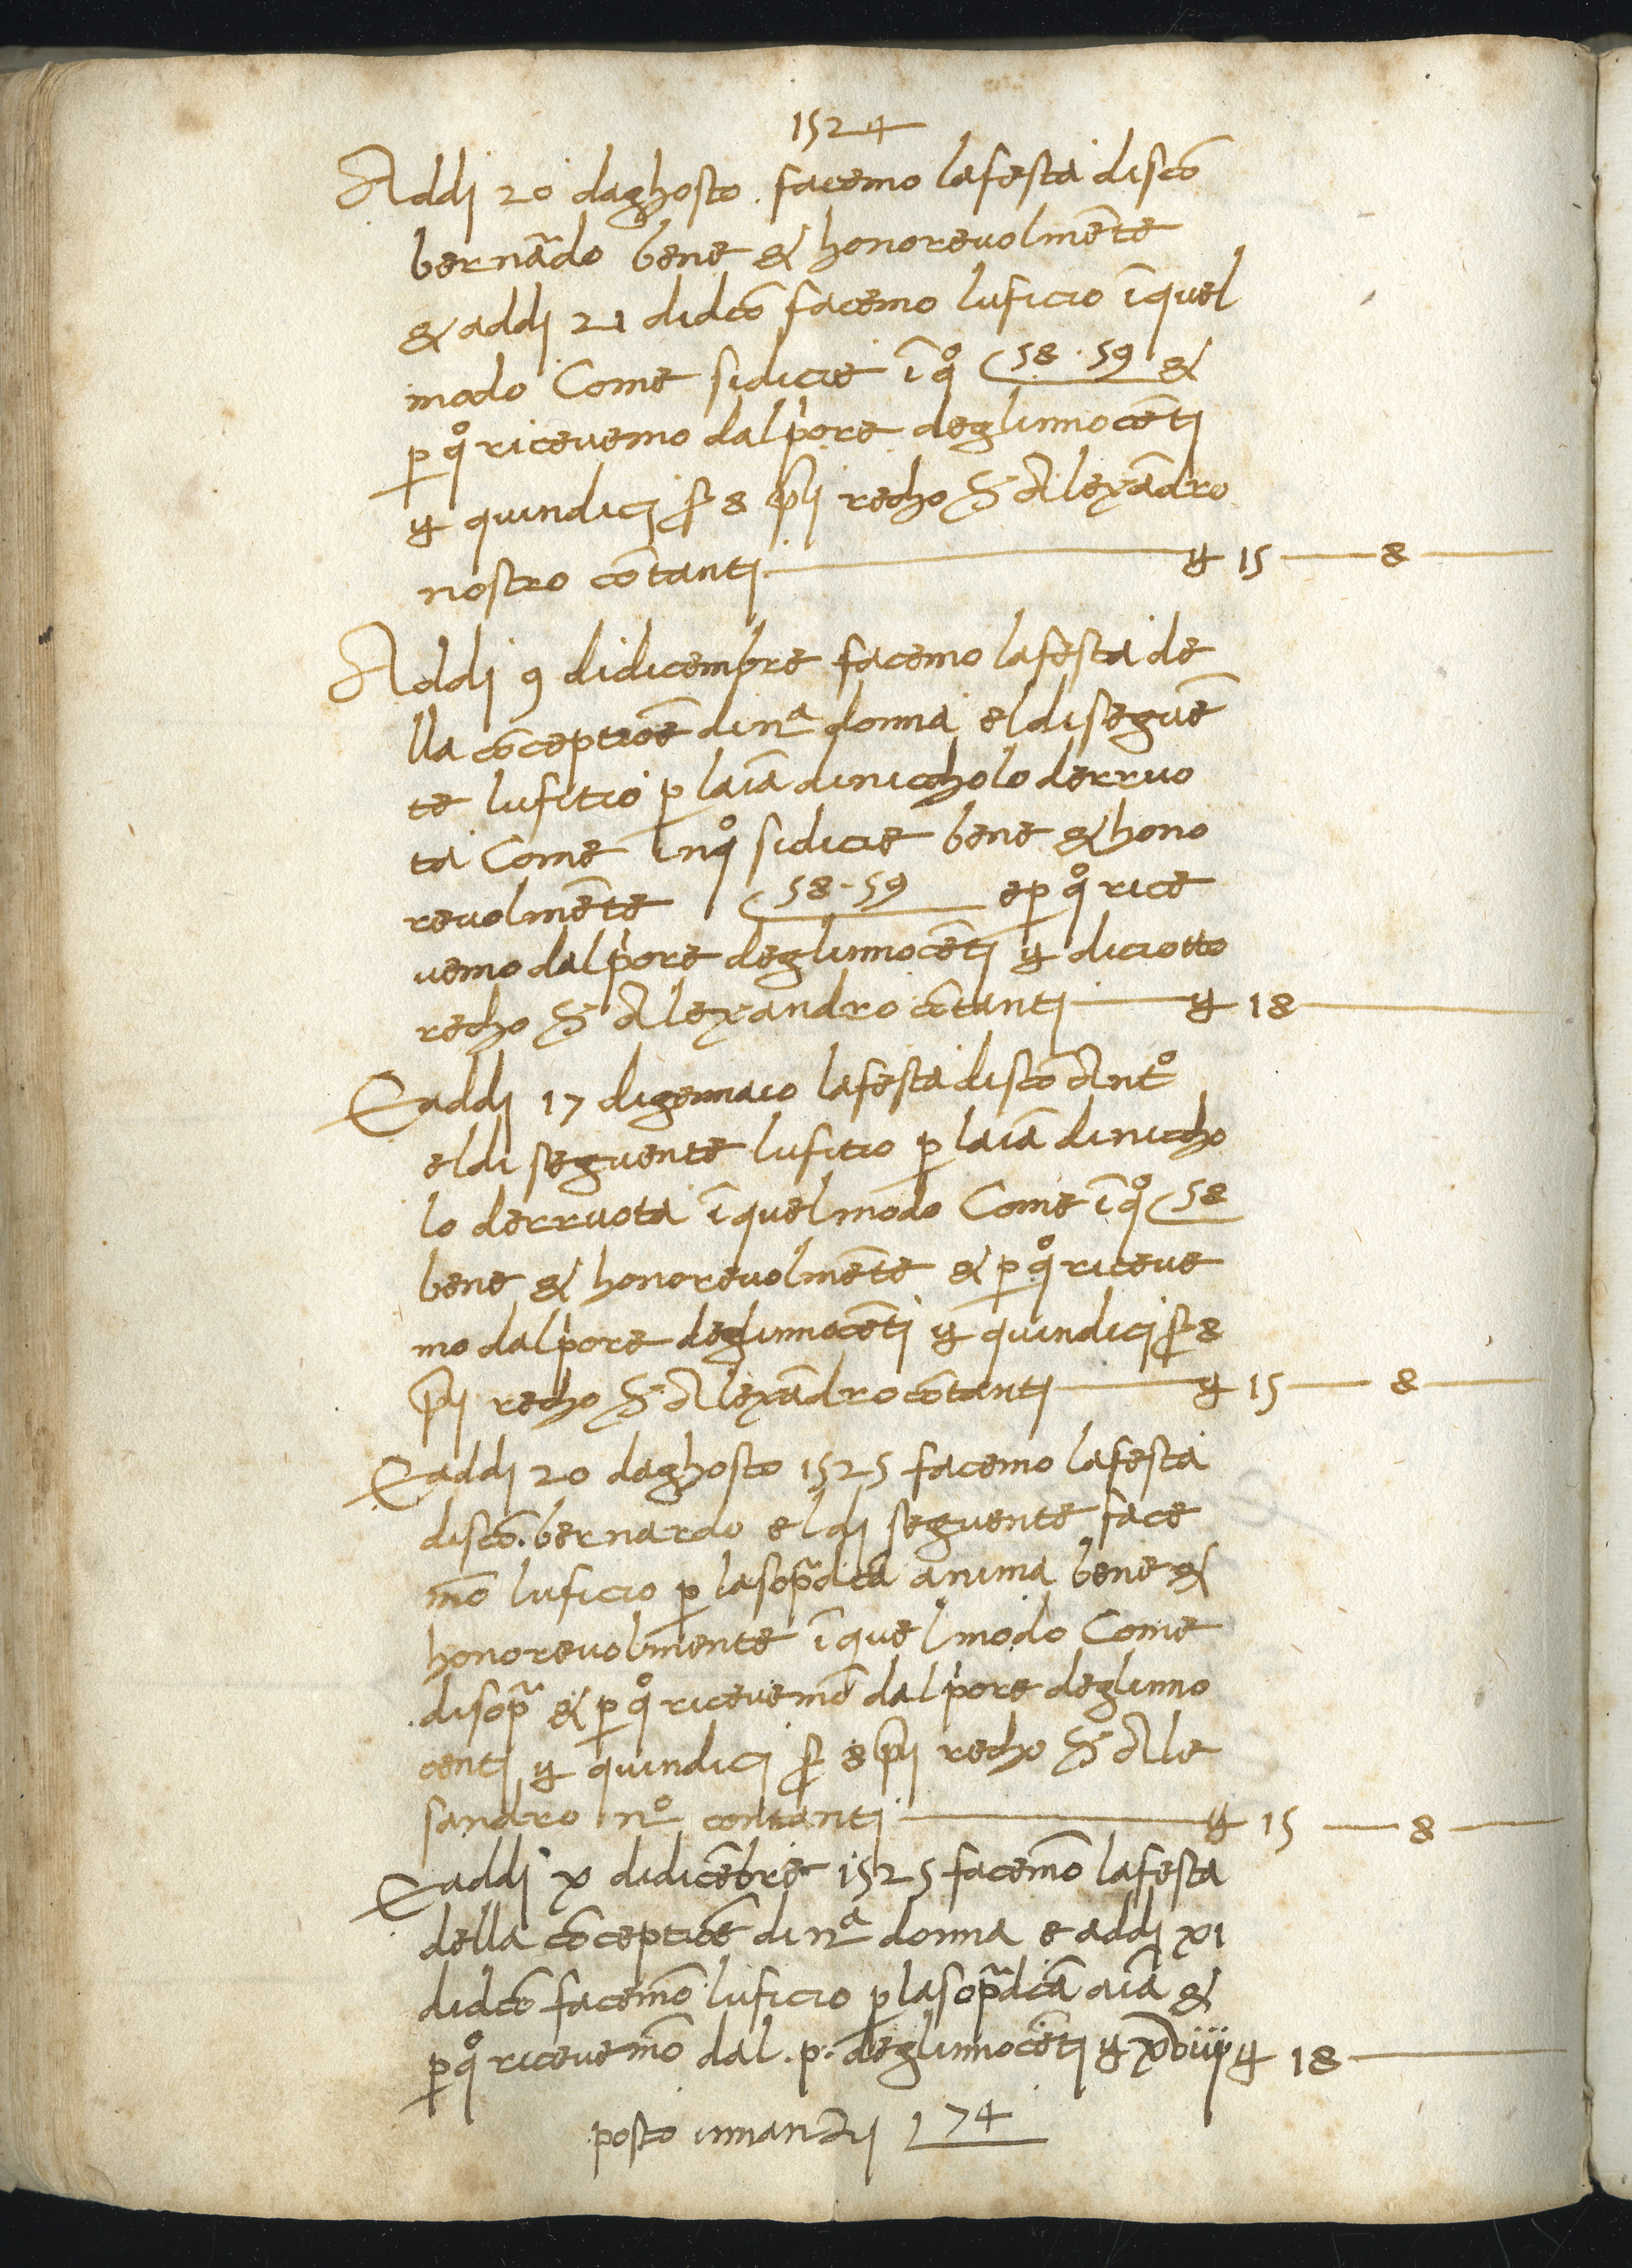 1524
Addi 20 daghosto facemo lafesta discō
bernādo bene & honorevolmēte
& addi 21 didcō facemo luficio īquel
modo Come sidicie ī qº 58 . 59 &
p̱ qº ricevemo dalp̄ore deglinnocēti
quindici 8 recho S. Alexādro
nostro cōtanti 15 8
Addi 9 didicembre facemo lafesta de
lla cōceptiōe di nᵃ donna eldi seguē
te lufitio p̱ laīa diniccholo derruo
ta Come inqº sidicie bene & hono
revolmēte 58 . 59 e p̱ qº rice
vemo dalp̄ore deglinnocēti diciotto
recho S. Alexandro cōtanti 18
E addi 17 digennaio lafesta discō Antº
eldi seguente lufitio p̱ laīa diniccho
lo derruota īquelmodo Come ī qº 58
bene & honorevolmēte & p̱ qº riceve
mo dalp̄ore deglinnocēti quindici 8
recho S. Alexādro cōtanti 15 8
E addi 20 daghosto 1525 facemo lafesta
discō. bernardo eldi seguente face
mo luficio p̱ lasop̄adcā anima bene &
honorevolmente īquelmodo Come
disop̄a & p̱ qº ricevemo dalp̄ore deglinno
centi quindici 8 recho S. Ale
sandro nº contanti 15 8
E addi x didicēbre 1525 facemo lafesta
della cōceptiōe di nᵃ donna e addi xi
didcō facemo luficio p̱ lasop̄adcā aīa &
p̱ qº ricevemo dal .p. deglinnocēti xviij 18
posto innanzi 74